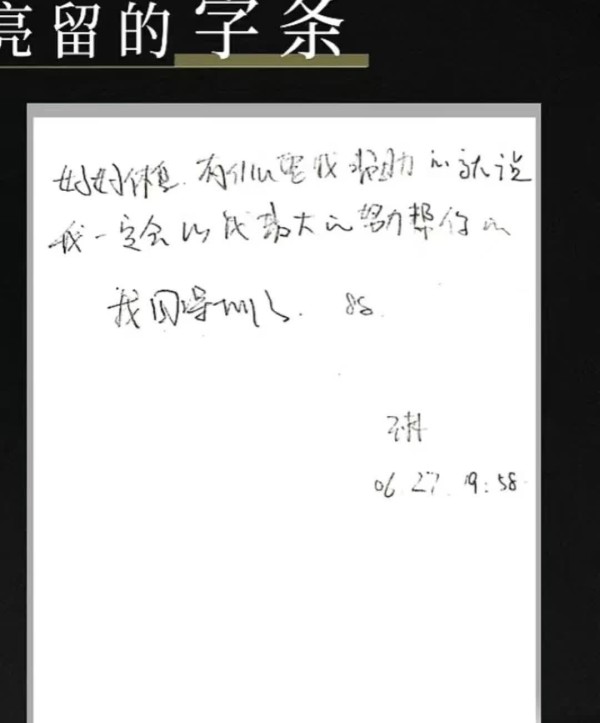 亮留的字条
好好休息.有什么要我帮助的就说
我一定会以我最大的努力帮你的
我回深圳了. 88
06.27.19:58